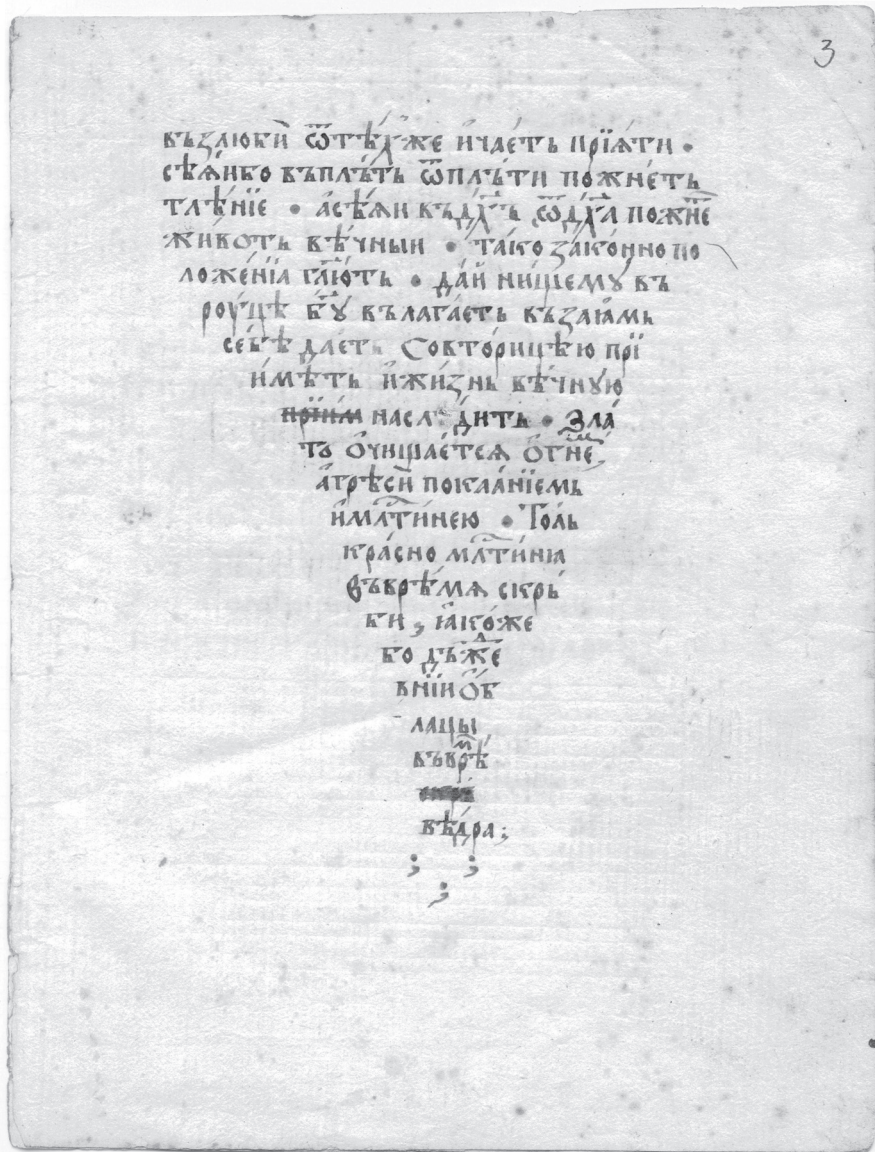 3
възлюби ѿтѣхже и҆чаетъ прїѧти •
сѣѧибо въплъ́ть ѿплъ́ти пожне́ть
тлѣ́нїе • а҆сѣ́ѧи въдх҃ъ ѿдх҃а пожне
живо́тъ вѣ́чныи • та́ко зако́нно по
ложе́нїа гл҃ютъ • да́й ни́щемꙋ въ
роу́цѣ бг҃ꙋ вълага́еть възаи́мь
себѣ̀ дае́ть Совтори́цѣю прї
и́мѣть и҆жи́знь вѣ́чнꙋю
наслѣ́дить • Зла́
то ѻ҆чища́етсѧ ѻ҆гне́м
а҆грѣси́ покаа́нїемь
и҆млⷭ҇тинею • То́ль
кра́сно млⷭ҇тинїа
въврѣ́мѧ скръ́
би ; ꙗ҆ко́же
бо дъжⷣе
внїи ѻ҆́б
лацы
въврѣ́м
вѣ́дра ;
; ;
;